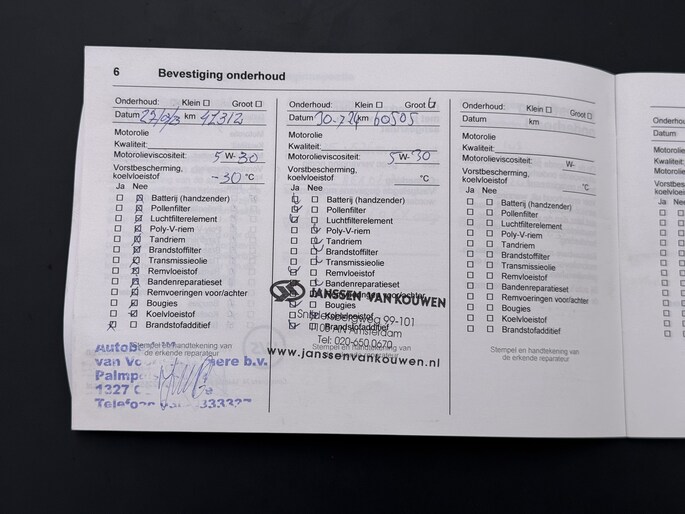 6 Bevestiging onderhoud
Onderhoud: Klein Groot
Datum km 47312
Motorolie
Kwaliteit:
Motorolieviscositeit: 5 W-30
Vorstbescherming,
koelvloeistof -30 °C
Ja Nee
Batterij (handzender)
Pollenfilter
Luchtfilterelement
Poly-V-riem
Tandriem
Brandstoffilter
Transmissieolie
Remvloeistof
Bandenreparatieset
Remvoeringen voor/achter
Bougies
Koelvloeistof
Brandstofadditief
Stempel en handtekening van
de erkende reparateur
van
b.v.
1327
Onderhoud: Klein Groot
Datum km 60505
Motorolie
Kwaliteit:
Motorolieviscositeit: 5 W-30
Vorstbescherming,
koelvloeistof °C
Ja Nee
Batterij (handzender)
Pollenfilter
Luchtfilterelement
Poly-V-riem
Tandriem
Brandstoffilter
Transmissieolie
Remvloeistof
Bandenreparatieset
Remvoeringen voor/achter
Bougies
Koelvloeistof
Brandstofadditief
JANSSEN VAN KOUWEN
99-101
AN Amsterdam
Tel: 020-650.0670
Stempel en handtekening van
de erkende reparateur
www.janssenvankouwen.nl
Onderhoud: Klein Groot
Datum km
Motorolie
Kwaliteit:
Motorolieviscositeit: W-
Vorstbescherming,
koelvloeistof °C
Ja Nee
Batterij (handzender)
Pollenfilter
Luchtfilterelement
Poly-V-riem
Tandriem
Brandstoffilter
Transmissieolie
Remvloeistof
Bandenreparatieset
Remvoeringen voor/achter
Bougies
Koelvloeistof
Brandstofadditief
Stempel en handtekening van
de erkende reparateur
Datum
Ja